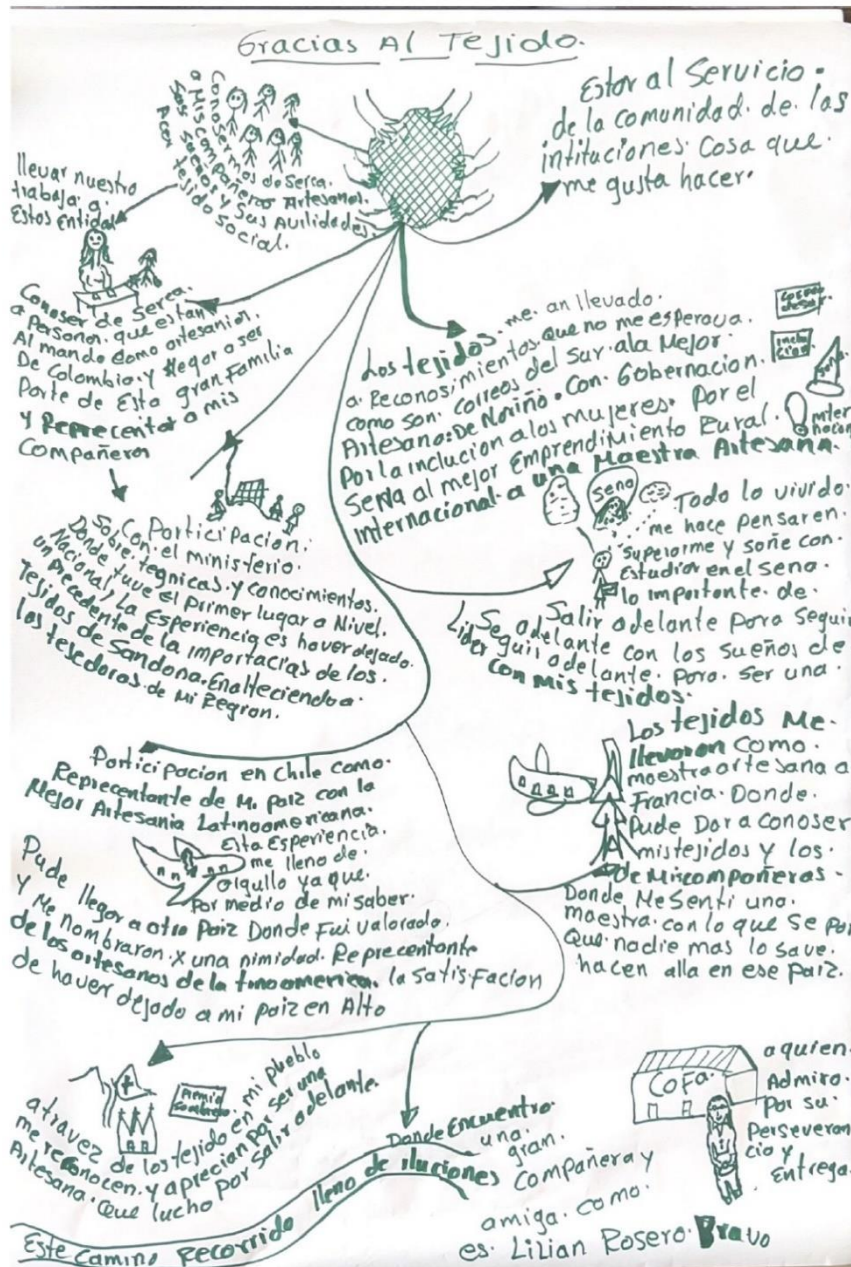 Gracias Al Tejido.
Conosermos de serca.
a Mis compañeros Artesanos.
Sus sueños y sus Avilidades.
Por tejido social.
Estar al Servicio.
de la comunidad. de. las
intituciones. Cosa que.
me gusta hacer.
llevar nuestro
trabajo. a.
Estos Entidad
Conoser de serca.
a Personas. que estan
Al mando. como artesanias.
De Colombia. y llegar a ser
Parte de Esta gran familia
y Reprecentar a mis
Compañeros
Los tejidos. me. an llevado.
a Reconosimientos. que no me esperava.
como son. correos del sur. ala Mejor
Artesana. De Nariño. Con Gobernacion.
Por la inclucion a los mujeres. Por el
Senda al mejor Emprendimiento Rural.
Internacional. a una Maestra Artesana.
Participacion.
Con. el ministerio
Sobre. tegnicas. y conocimientos.
Donde tuve el Primer lugar a Nivel.
Nacional, La Esperiencia es haver dejado.
un Precedente de la importacias de los.
Tejidos de Sandona. Enalteciendo a
las tesedoras. de Mi Region.
Sena
Todo lo vivido.
me hace pensar en.
superarme y soñe con.
Estudiar en el Sena.
lo importante. de.
Salir adelante para Seguir
Seguir adelante con los sueños de
Lider adelante. Para. ser una.
con Mis tejidos.
Participacion en Chile como.
Reprecentante de Mi Paiz con la
Mejor Artesania Latinoamericana.
Esta Experiencia.
me lleno de.
olgullo ya que.
Por medio de mi saber.
Pude llegar a otro Paiz Donde Fui valorado.
y Me nombraron. x una nimidad. Reprecentante
de los artesanos de la tinoamerica. la Satisfacion
de haver dejado a mi paiz en Alto
Los tejidos Me
llevaron Como.
maestra artesana a
Francia. Donde.
Pude Dar a conoser
mis tejidos y los.
de Mis compañeras.
Donde Me Senti una.
maestra. con lo que Se Por
Que. nadie mas lo save.
hacen alla en ese Paiz.
Premio
Sombrero
atravez de los tejido en mi pueblo
me reconocen. y aprecian Por ser una
Artesana. Que lucho por salir adelante.
Este Camino Recorrido lleno de iluciones
Donde Encuentro.
una.
gran.
Compañera y
amiga. como.
es. Lilian Rosero. Bravo
CoFa.
a quien.
Admiro.
Por su.
Perseveran
cia y
Entrega.